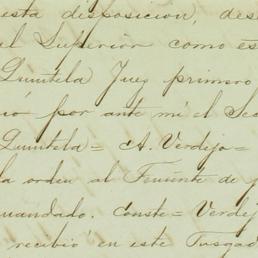 esta disposicion, des
al Superior como es
Quintela Juez primero
ió por ante mi el Sec
Quintela = A. Verdejo =
la orden al Teniente de
mandado. Conste = Verdej
recibió en este Juzgad